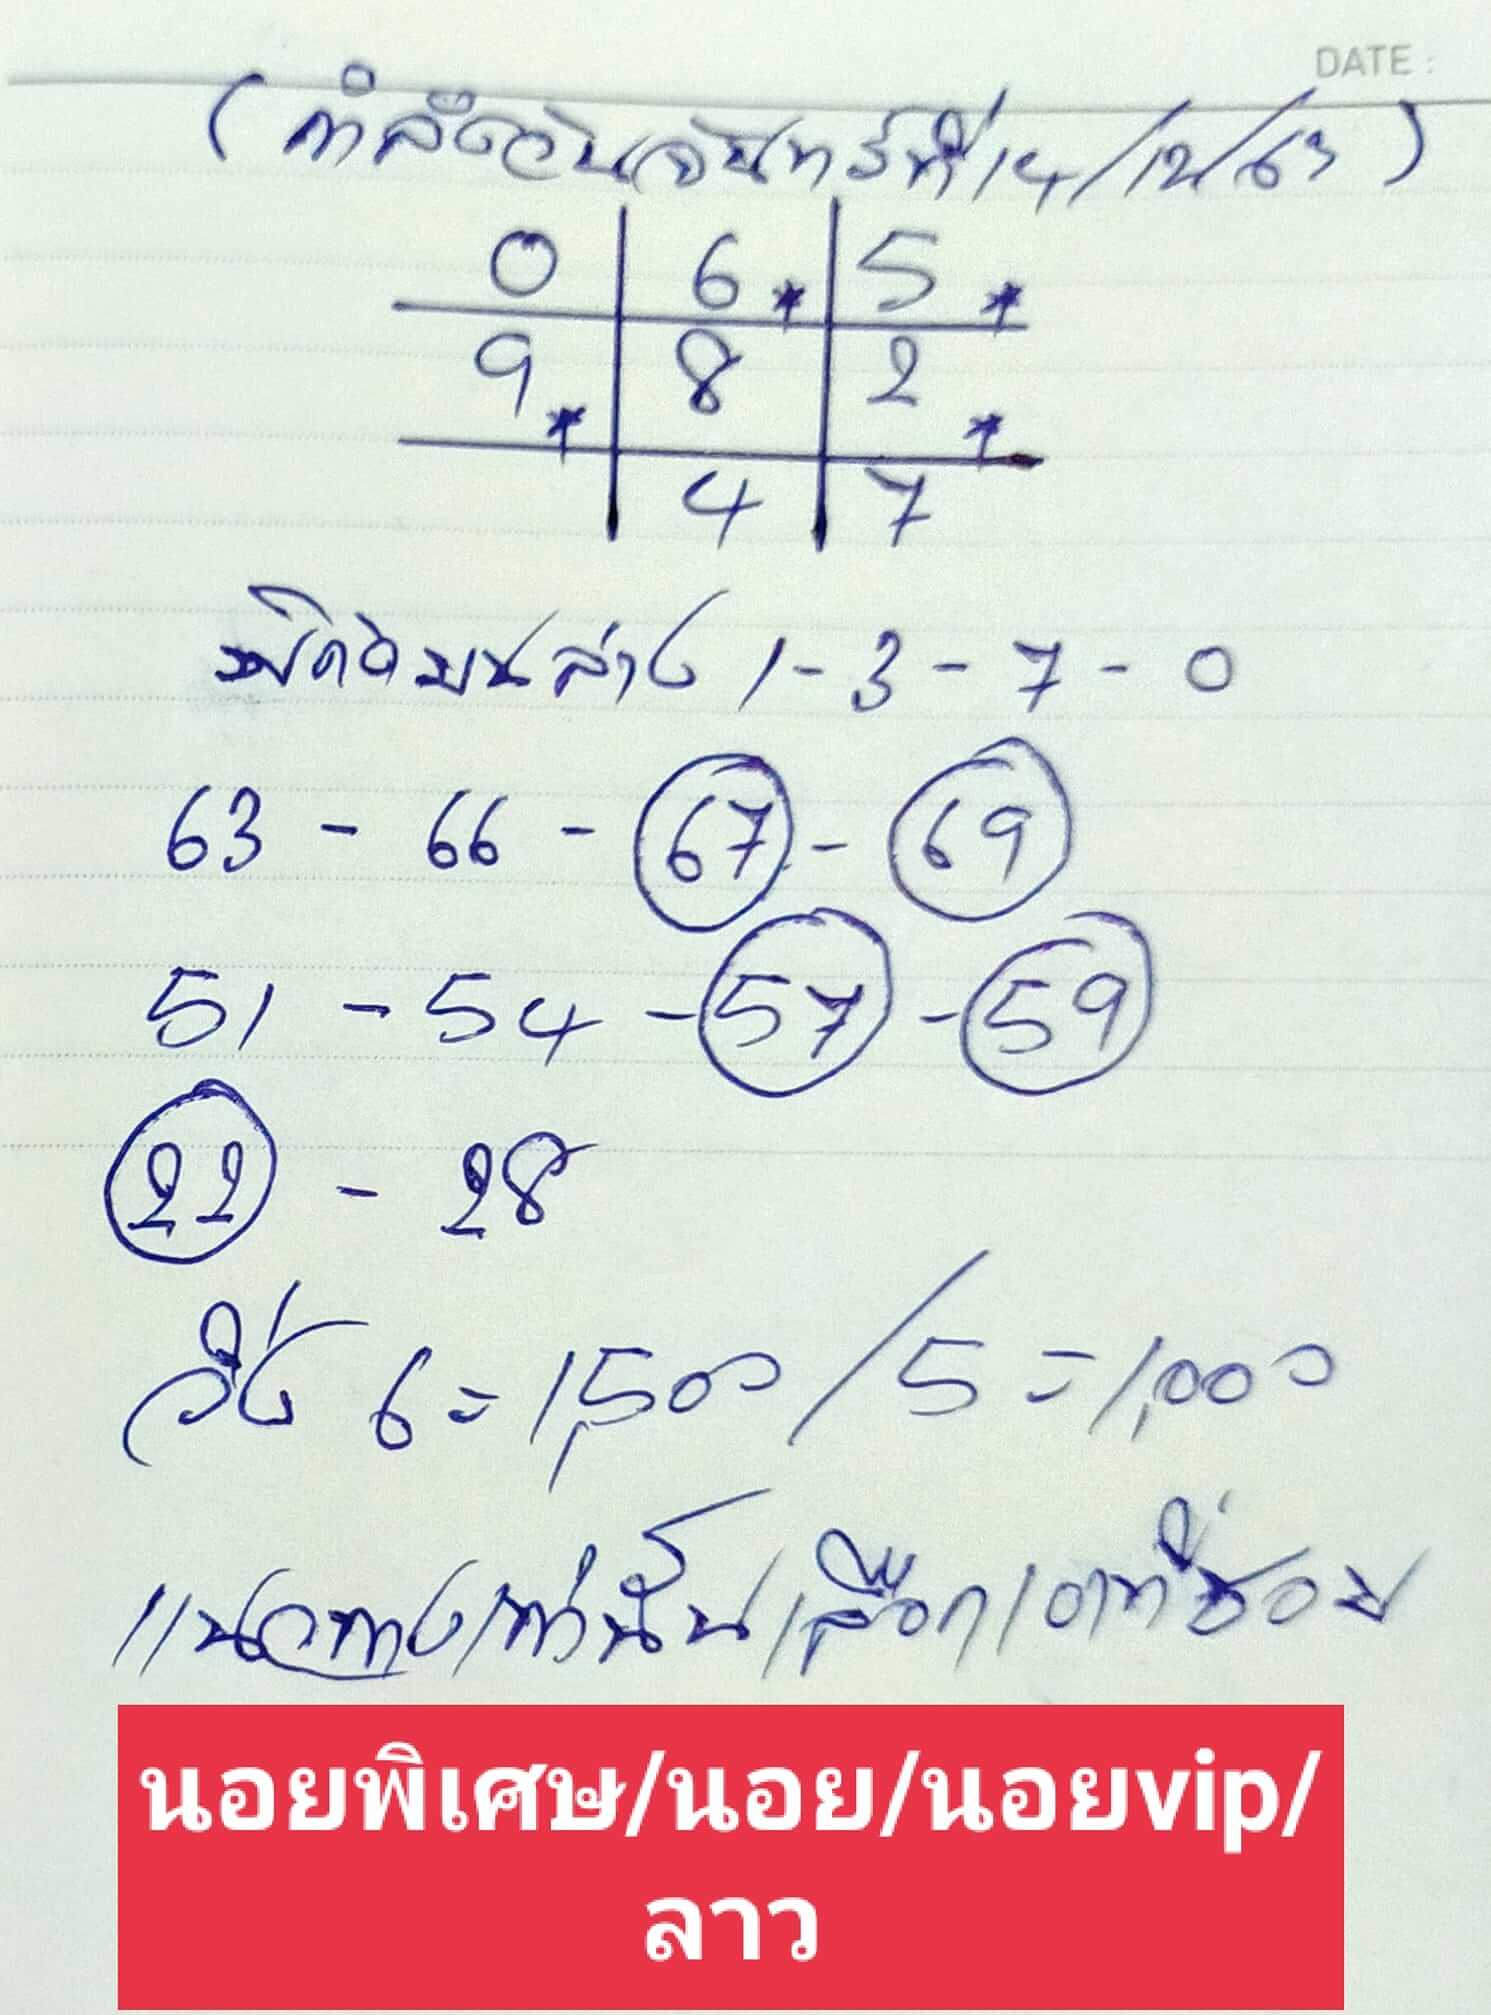 DATE :
(กำลังวันจันทร์ที่ 14/12/63)
0 6* 5*
9* 8 2*
4 7
ล่าง 1-3-7-0
63 - 66 - 67 - 69
51 - 54 - 57 - 59
22 - 28
วิ่ง 6 = 1,500 / 5 = 1,000
แนวทางเท่านั้นเลือกเอาที่ชอบ
นอยพิเศษ/นอย/นอยvip/
ลาว